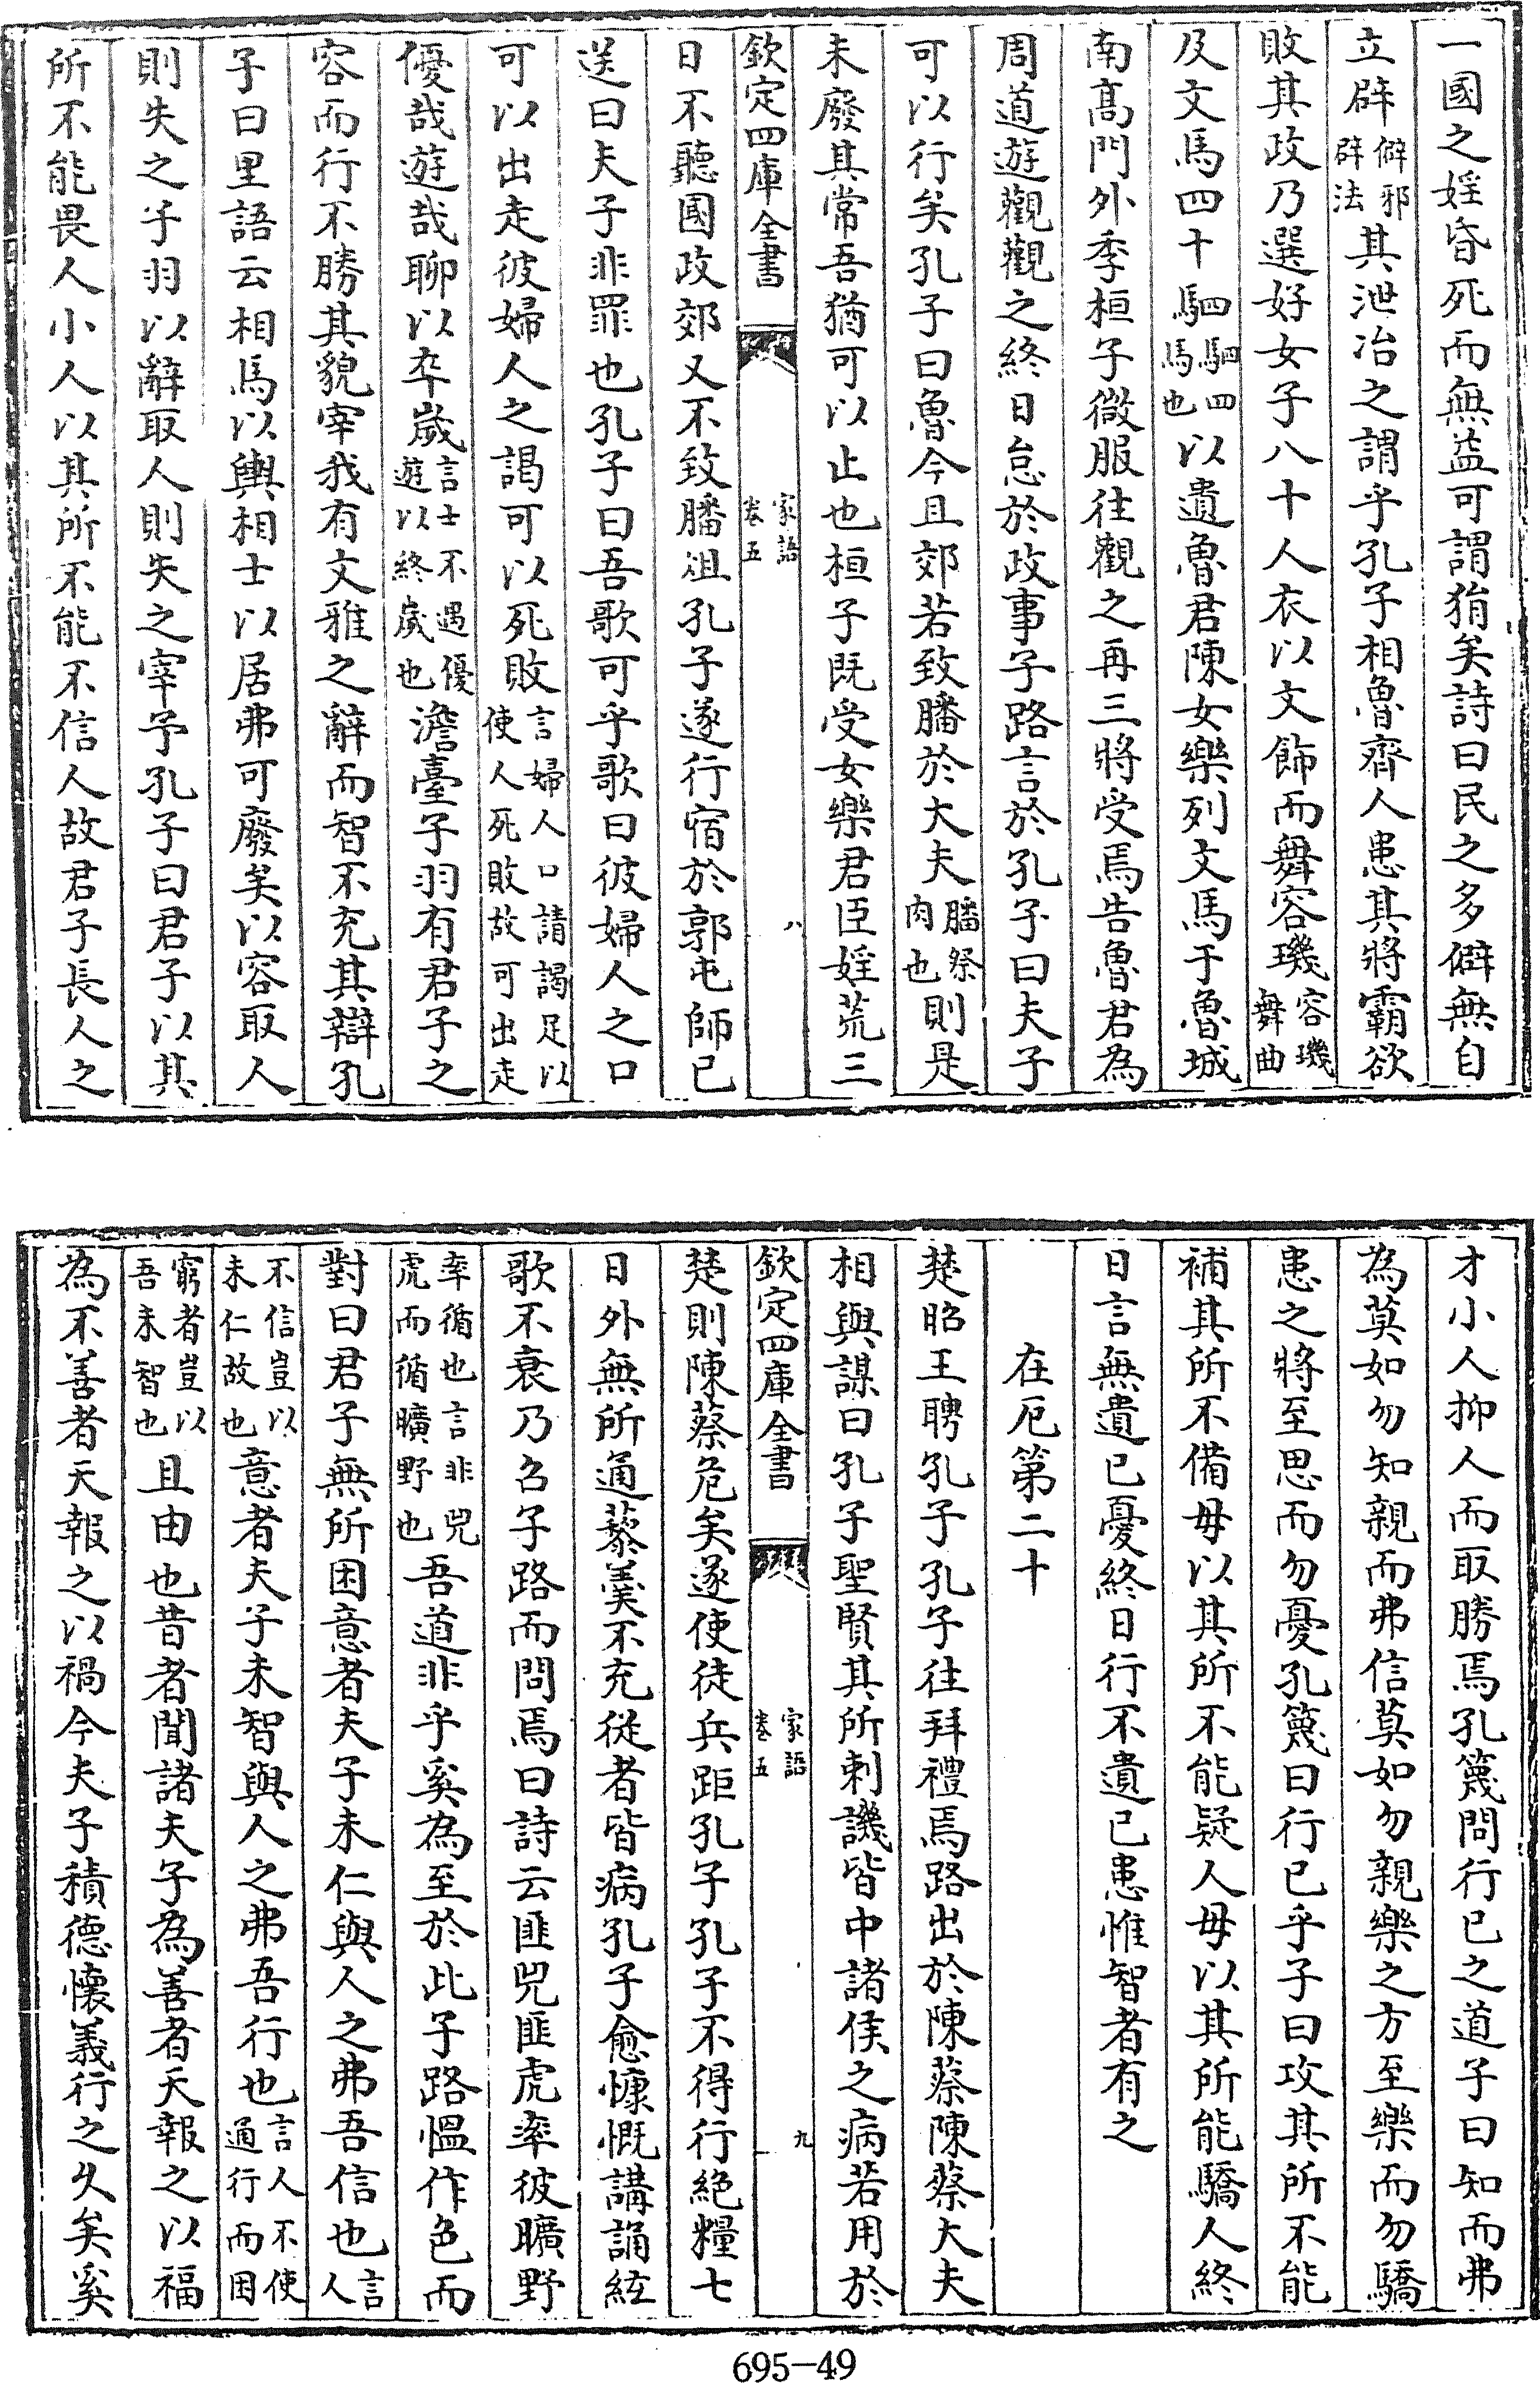 一國之婬昏死而無益可謂狷矣詩曰民之多僻無自
立辟僻邪辟法其泄冶之謂乎孔子相魯齊人患其將霸欲
敗其政乃選好女子八十人衣以文飾而舞容璣容璣舞曲
及文馬四十駟駟四馬也以遺魯君陳女樂列文馬于魯城
南髙門外季桓子微服往觀之再三將受焉告魯君為
周道遊觀觀之終日怠於政事子路言於孔子曰夫子
可以行矣孔子曰魯今且郊若致膰於大夫膰祭肉也則是
未廢其常吾猶可以止也桓子既受女樂君臣婬荒三
欽定四庫全書 家語卷五 八
日不聽國政郊又不致膰俎孔子遂行宿於郭屯師已
送曰夫子非罪也孔子曰吾歌可乎歌曰彼婦人之口
可以出走彼婦人之謁可以死敗言婦人口請謁足以使人死敗故可出走
優哉遊哉聊以卒嵗言士不遇優遊以終嵗也澹臺子羽有君子之
容而行不勝其貌宰我有文雅之辭而智不充其辯孔
子曰里語云相馬以輿相士以居弗可廢矣以容取人
則失之子羽以辭取人則失之宰予孔子曰君子以其
所不能畏人小人以其所不能不信人故君子長人之
才小人抑人而取勝焉孔篾問行已之道子曰知而弗
為莫如勿知親而弗信莫如勿親樂之方至樂而勿驕
患之將至思而勿憂孔篾曰行已乎子曰攻其所不能
補其所不備毋以其所不能疑人毋以其所能驕人終
日言無遺已憂終日行不遺已患惟智者有之
在厄第二十
楚昭王聘孔子孔子往拜禮焉路出於陳蔡陳蔡大夫
相與謀曰孔子聖賢其所刺譏皆中諸侯之病若用於
欽定四庫全書 家語卷五 九
楚則陳蔡危矣遂使徒兵距孔子孔子不得行絶糧七
日外無所通藜羹不充從者皆病孔子愈慷慨講誦絃
歌不衰乃召子路而問焉曰詩云匪兕匪虎率彼曠野
率循也言非兕虎而循曠野也吾道非乎奚為至於此子路愠作色而
對曰君子無所困意者夫子未仁與人之弗吾信也言人
不信豈以未仁故也意者夫子未智與人之弗吾行也言人不使通行而困
窮者豈以吾未智也且由也昔者聞諸夫子為善者天報之以福
為不善者天報之以禍今夫子積德懐義行之乆矣奚
695-49